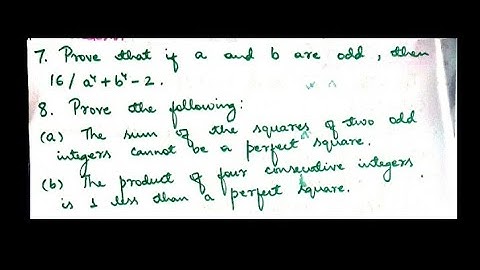 7. Prove that if a and b are odd, then
16 / a⁴ + b⁴ - 2.
8. Prove the following:
(a) The sum of the squares of two odd
integers cannot be a perfect square.
(b) The product of four consecutive integers
is 1 less than a perfect square.